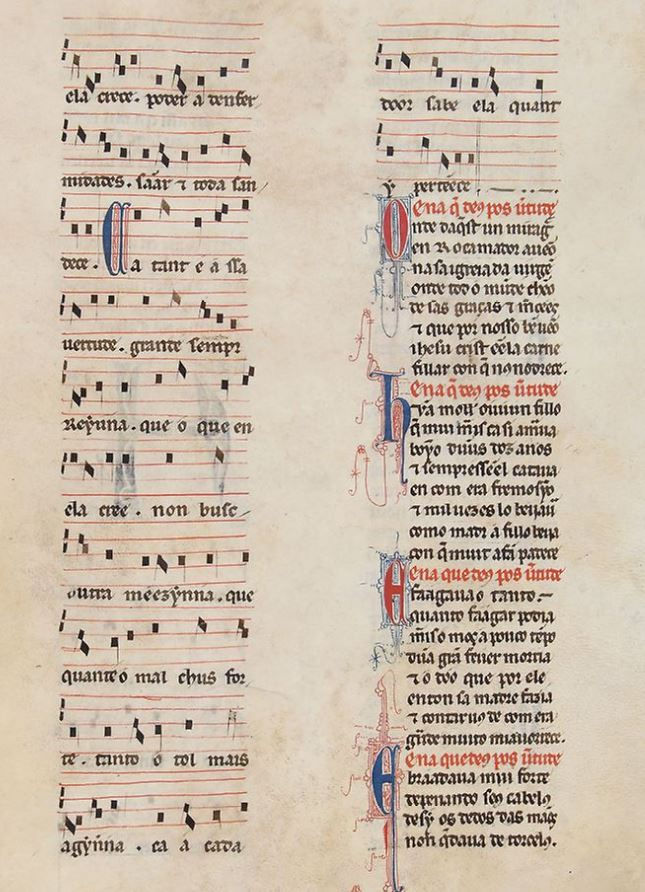 ela crece. poder a denfer
midades. sãar ⁊ toda san
dece. Ca tant e a ssa
uertute. grande sempr
Reỹnna. que o que en
ela cree. non busc
outra meezỹnna. que
quanteo mal chus for
te. tanto o tol mais
agỹnna. ca a cada
door sabe ela quant
y perteece.
Ena q̃ deꝯ pos ũtude
Onde daq̃st un mirag̃
en Rocamador aueo
na sa igreia da uirgẽ
onde tod o mũde chẽo
de sas graças ⁊ m̃cees
⁊ que por nosso bẽ ueo
ihesu crist ẽela carne
fillar con q̃ nos nodrece.
Ena q̃ deꝯ pos ũtude
Hũa moll ouu un fillo
q̃ mui mais ca si amaua
boỹo duũs doz anos
⁊ sempressẽel cataua
en com era fremosỹo
⁊ mil uezes lo beijaua
como madr a fillo beija
con q̃ muit afã padece
Ena que deꝯ pos ũtude
E faagauao tanto.
quanto faagar podia
m̃iso moç a pouco tẽpo
dũa grã feuer moria
⁊ o doo que por ele
enton sa madre fazia
⁊ contaruꝯ de com era
g̃nde muito mi auorrece.
Ena que deꝯ pos ũtude
E braadaua mui forte
depenando seꝯ cabelꝯ
desỹ os dedos das mãos
non q̃daua de torcelꝯ.